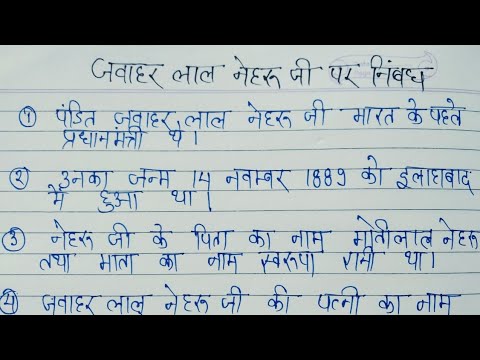 जवाहर लाल नेहरू जी पर निबंध
① पंडित जवाहर लाल नेहरू जी भारत के पहले
प्रधानमंत्री थे।
② उनका जन्म 14 नवम्बर 1889 को इलाहाबाद
में हुआ था।
③ नेहरू जी के पिता का नाम मोतीलाल नेहरू
तथा माता का नाम स्वरूपा रानी था।
④ जवाहर लाल नेहरू जी की पत्नी का नाम